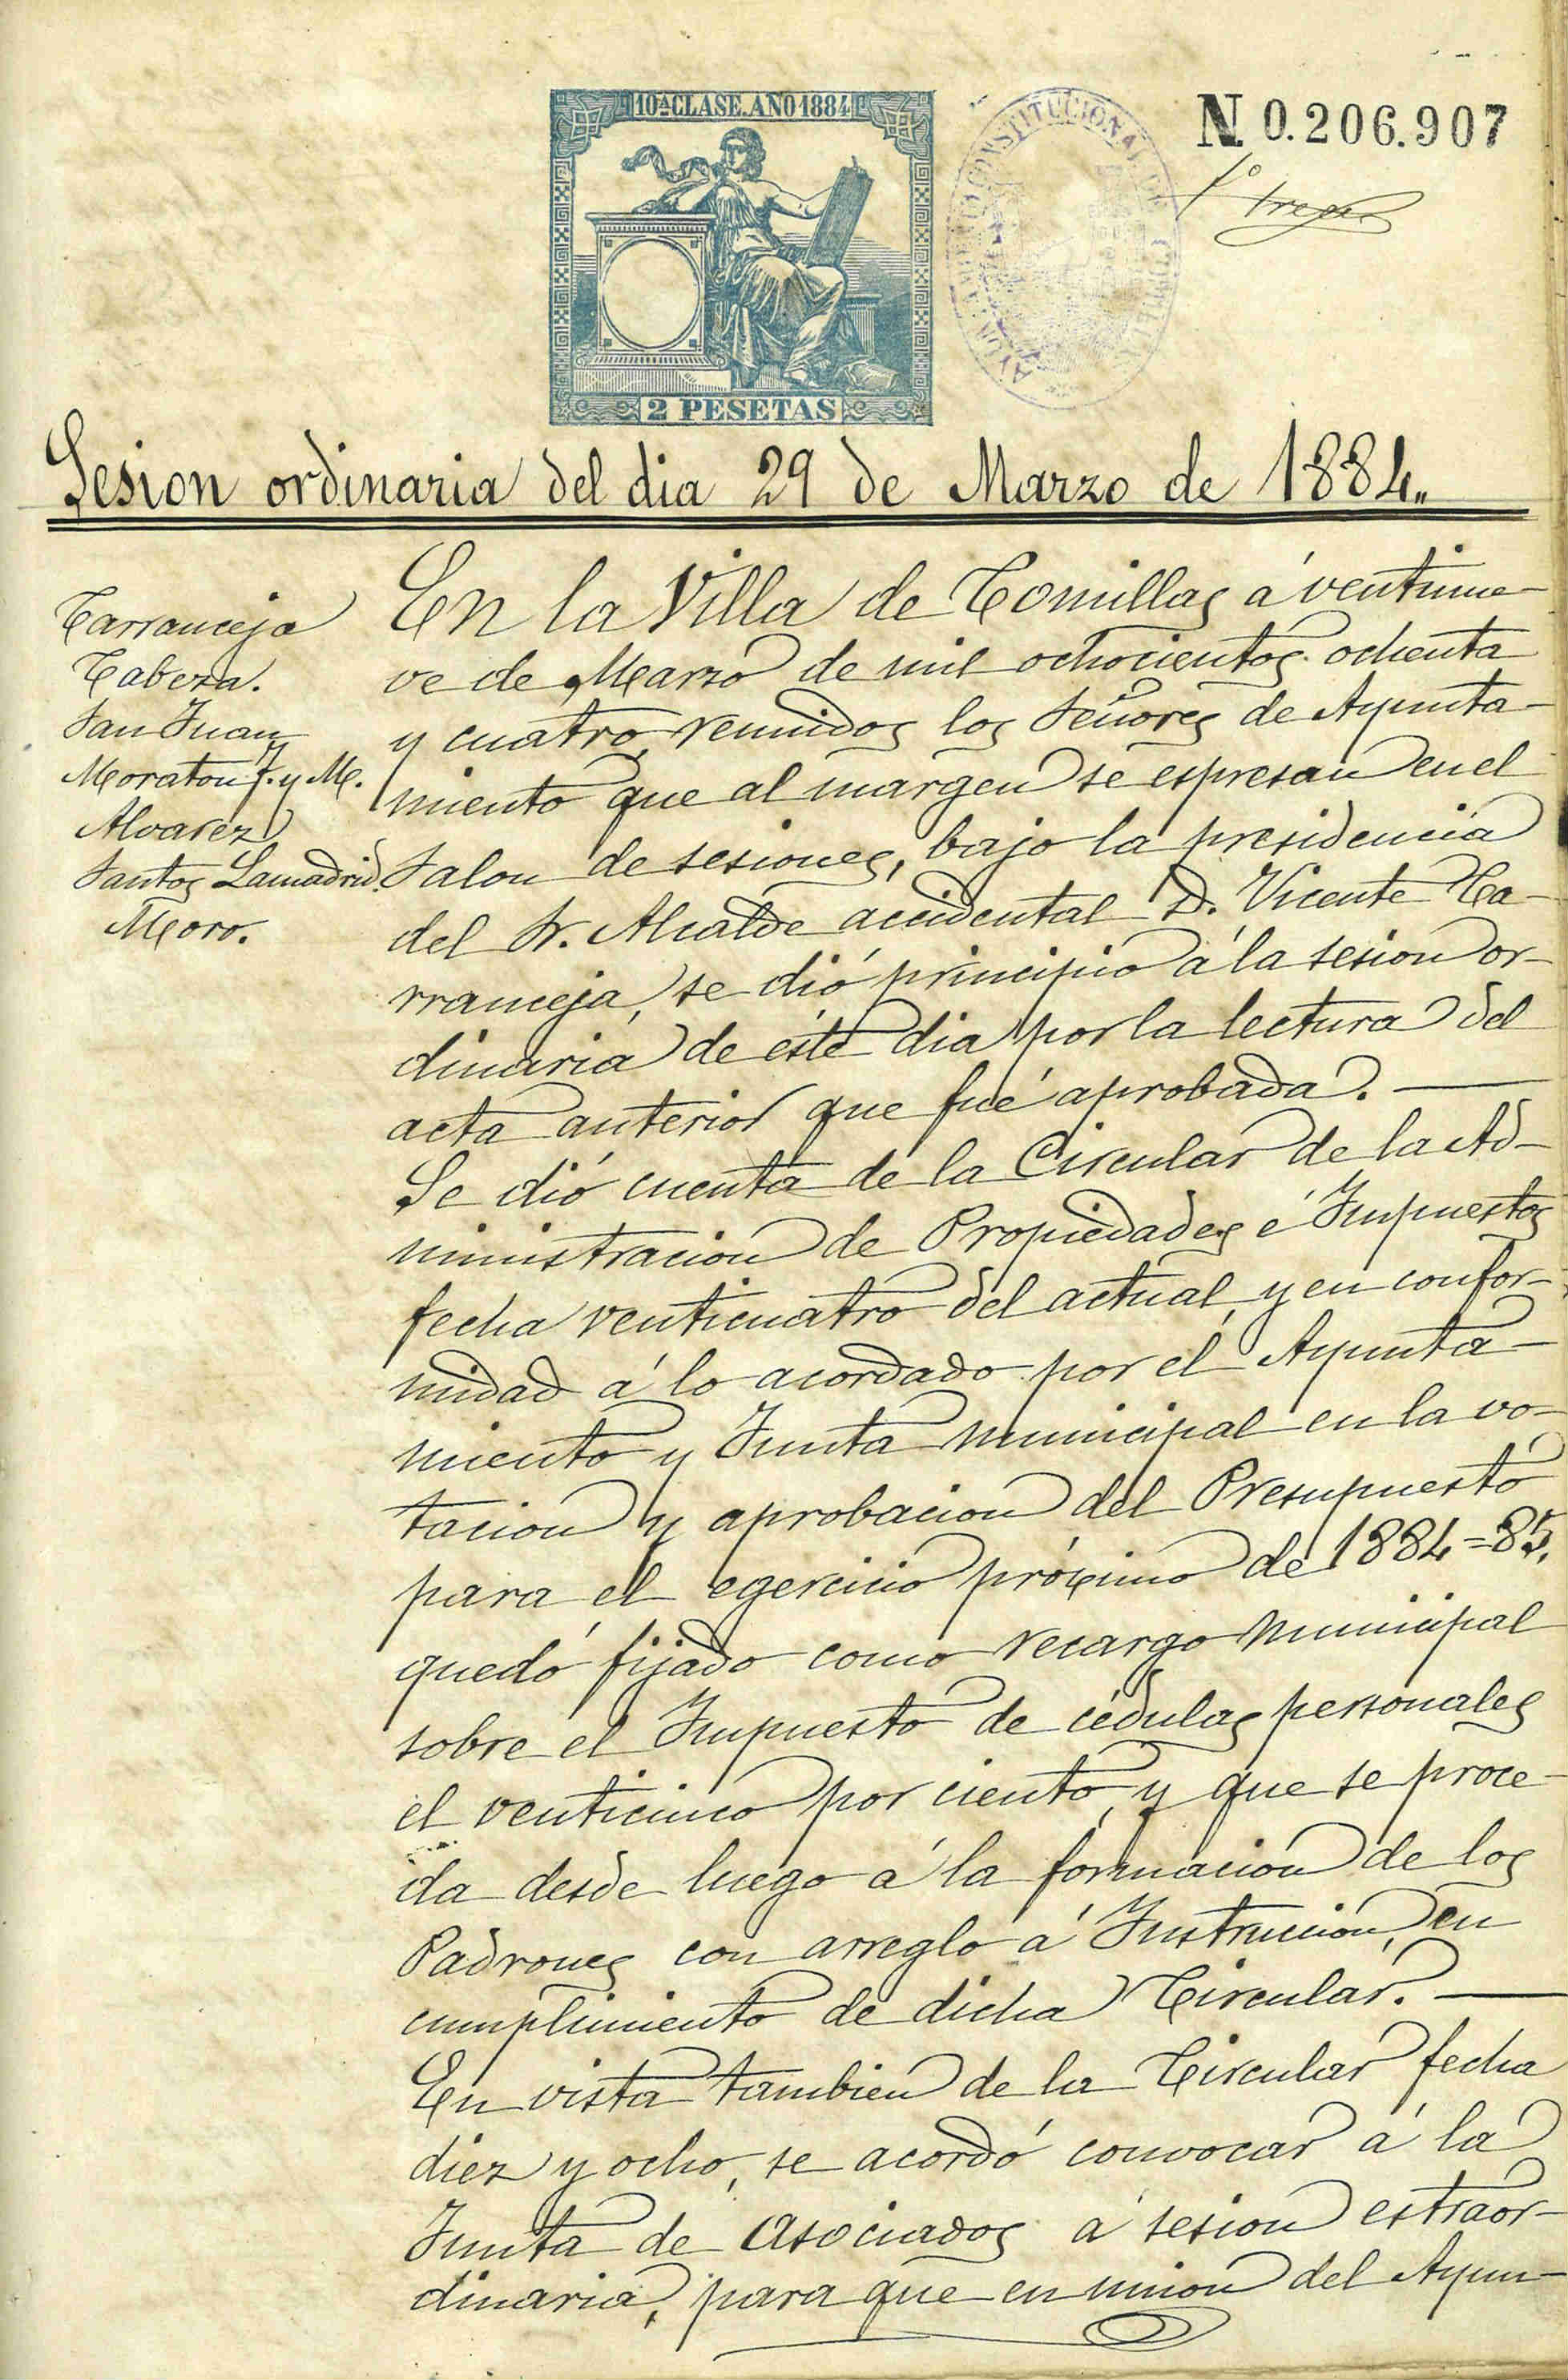 10ª CLASE. AÑO 1884
N. 0.206.907
AYUNTAMIENTO CONSTITUCIONAL DE COMILLAS
2 PESETAS
Sesion ordinaria del dia 29 de Marzo de 1884.,
Carranceja
Cabeza.
San Juan
Moraton J. y M.
Alvarez
Santos Lamadrid.
Moro.
En la Villa de Comillas á ventinue-
ve de Marzo de mil ochocientos ochenta
y cuatro, reunidos los Señores de Ayunta-
miento que al margen se espresan en el
Salon de sesiones, bajo la presidencia
del Sr. Alcalde accidental D. Vicente Ca-
rranceja, se dió principio á la sesion or-
dinaria de éste dia por la lectura del
acta anterior que fué aprobada. —
Se dió cuenta de la Circular de la Ad-
ministracion de Propiedades é Impuestos
fecha venticuatro del actual, y en confor-
midad á lo acordado por el Ayunta-
miento y Junta municipal en la vo-
tacion y aprobacion del Presupuesto
para el egercicio próximo de 1884=85,
quedó fijado como recargo municipal
sobre el Impuesto de cédulas personales
el venticinco por ciento, y que se proce-
da desde luego á la formacion de los
Padrones con arreglo á Instruccion, en
cumplimiento de dicha Circular. —
En vista tambien de la Circular fecha
diez y ocho, se acordó convocar á la
Junta de Asociados á sesion estraor-
dinaria, para que en union del Ayun-